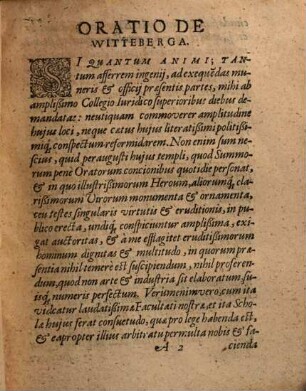 ORATIO DE
WITTEBERGA.
SI QUANTUM ANIMI, TAN-
tum afferrem ingenij, ad exequẽdas mu-
neris & officij præsentis partes, mihi ab
amplißimo Collegio Iuridico superioribus diebus de-
mandatæ: neutiquam commoverer amplitudine
hujus loci, neque cœtus hujus literatißimi politißi-
miq́; conspectum reformidarem. Non enim sum ne-
scius, quid peraugusti hujus templi, quod Summo-
rum pene Oratorum concionibus quotidie personat,
& in quo illustrißimorum Heroum, aliorumq́;, cla-
rißimorum Virorum monumenta & ornamenta,
ceu testes singularis virtutis & eruditionis, in pu-
blico erecta, undiq́; conspiciuntur amplißima, exi-
gat auctoritas, & à me efflagitet eruditißimorum
hominum dignitas & multitudo, in quorum præ-
sentia nihil temerè est suscipiendum, nihil proferen-
dum, quod non arte & industria sit elaboratum su-
isq́; numeris perfectum. Verumenimvero, cum ita
videatur laudatißimæ Facultati nostræ, et ita Scho-
læ hujus ferat consuetudo, quæ pro lege habenda est,
& eapropter illius arbitratu permulta nobis & fa-
A 2 cienda